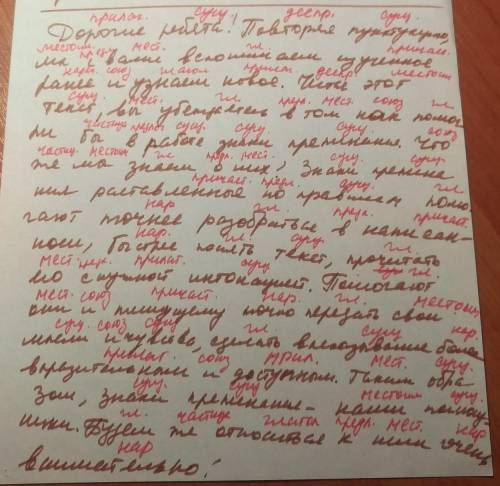 прилаг. сущ. деепр. сущ.
Дорогие ребята! Повторяя пунктуацию,
местоим. предл. мест. гл. причаст.
мы с вами вспоминаем изученное
нареч. союз глагол прилаг. деепр местоим
ранее и узнаем новое. Читая этот
сущ. мест. гл. предл. мест. союз гл.
текст, вы убедитесь в том как помог
частица предлог сущ. сущ. сущ. союз
ли бы в работе знаки препинания. Что
частиц. местоим гл. предл. мест. сущ. сущ.
же мы знаем о них? Знаки препина
причаст. предл. сущ. гл.
ния расставленные по правилам помо
нар гл. предл. причаст.
гают точнее разобраться в написан-
нар. гл. сущ. гл.
ном, быстрее понять текст, прочитать
мест. предл. прилаг. сущ. гл.
его с нужной интонацией. Помогают
мест. союз причаст. нар. гл. местоим
они и пишущему точно передать свои
сущ. союз сущ. гл. сущ. нар.
мысли и чувства, сделать высказывание более
прилаг. союз прил. мест. сущ.
выразительным и доступным. Таким обра
сущ. сущ. местоим сущ.
зом, знаки препинания - наши помощ-
гл. частица глагол предл. мест. нар
ники. Будем же относиться к ним очень
нар
внимательно!